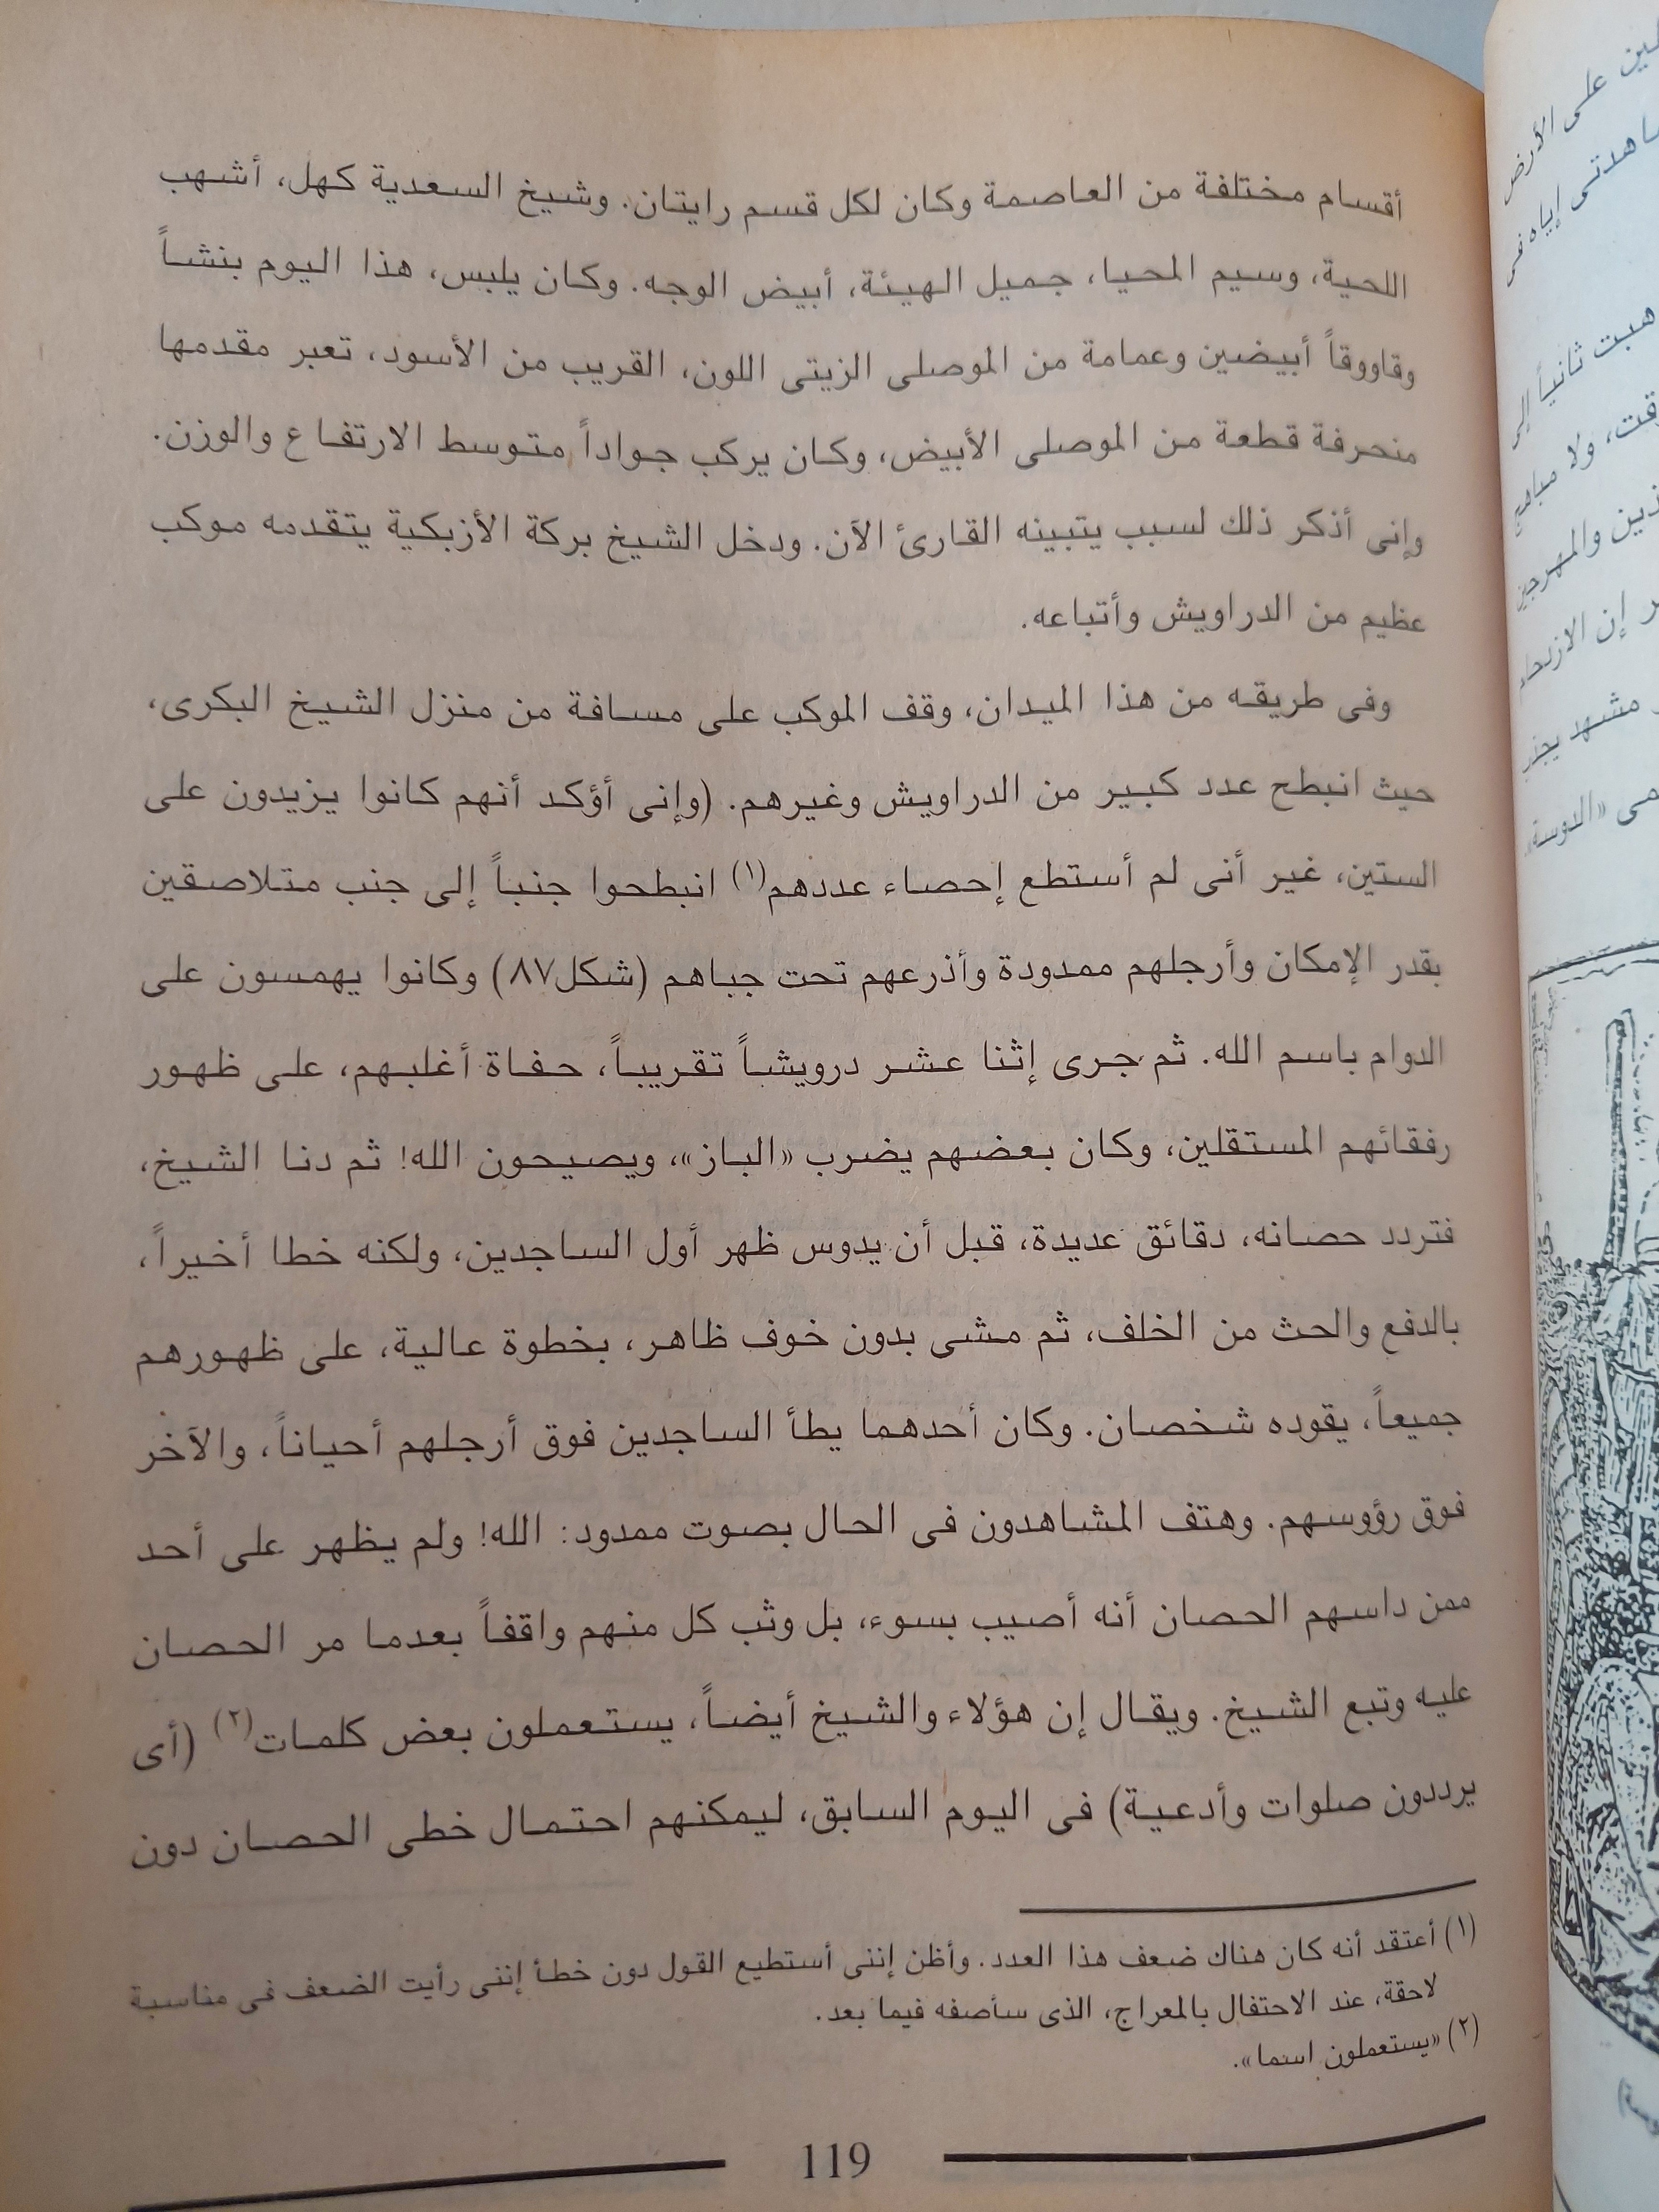 أقسام مختلفة من العاصمة وكان لكل قسم رايتان. وشيخ السعدية كهل، أشهب
اللحية، وسيم المحيا، جميل الهيئة، أبيض الوجه. وكان يلبس، هذا اليوم بنشاً
وقاووقاً أبيضين وعمامة من الموصلى الزيتى اللون، القريب من الأسود، تعبر مقدمها
منحرفة قطعة من الموصلى الأبيض، وكان يركب جواداً متوسط الارتفاع والوزن.
وإنى أذكر ذلك لسبب يتبينه القارئ الآن. ودخل الشيخ بركة الأزبكية يتقدمه موكب
عظيم من الدراويش وأتباعه.
وفى طريقه من هذا الميدان، وقف الموكب على مسافة من منزل الشيخ البكرى،
حيث انبطح عدد كبير من الدراويش وغيرهم. (وإنى أؤكد أنهم كانوا يزيدون على
الستين، غير أنى لم أستطع إحصاء عددهم(١) انبطحوا جنباً إلى جنب متلاصقين
بقدر الإمكان وأرجلهم ممدودة وأذرعهم تحت جباهم (شكل٨٧) وكانوا يهمسون على
الدوام باسم الله. ثم جرى إثنا عشر درويشاً تقريباً، حفاة أغلبهم، على ظهور
رفقائهم المستقلين، وكان بعضهم يضرب «الباز»، ويصيحون الله! ثم دنا الشيخ،
فتردد حصانه، دقائق عديدة، قبل أن يدوس ظهر أول الساجدين، ولكنه خطا أخيراً،
بالدفع والحث من الخلف، ثم مشى بدون خوف ظاهر، بخطوة عالية، على ظهورهم
جميعاً، يقوده شخصان. وكان أحدهما يطأ الساجدين فوق أرجلهم أحياناً، والآخر
فوق رؤوسهم. وهتف المشاهدون فى الحال بصوت ممدود: الله! ولم يظهر على أحد
ممن داسهم الحصان أنه أصيب بسوء، بل وثب كل منهم واقفاً بعدما مر الحصان
عليه وتبع الشيخ. ويقال إن هؤلاء والشيخ أيضاً، يستعملون بعض كلمات(٢) (أى
يرددون صلوات وأدعية) فى اليوم السابق، ليمكنهم احتمال خطى الحصان دون
(١) أعتقد أنه كان هناك ضعف هذا العدد. وأظن إننى أستطيع القول دون خطأ إننى رأيت الضعف فى مناسبة
لاحقة، عند الاحتفال بالمعراج، الذى سأصفه فيما بعد.
(٢) «يستعملون اسما».
119
على الأرض
إياه فى
ثانياً إلى
ولا
والمهرجين
إن
مشهد
«الدوسة»